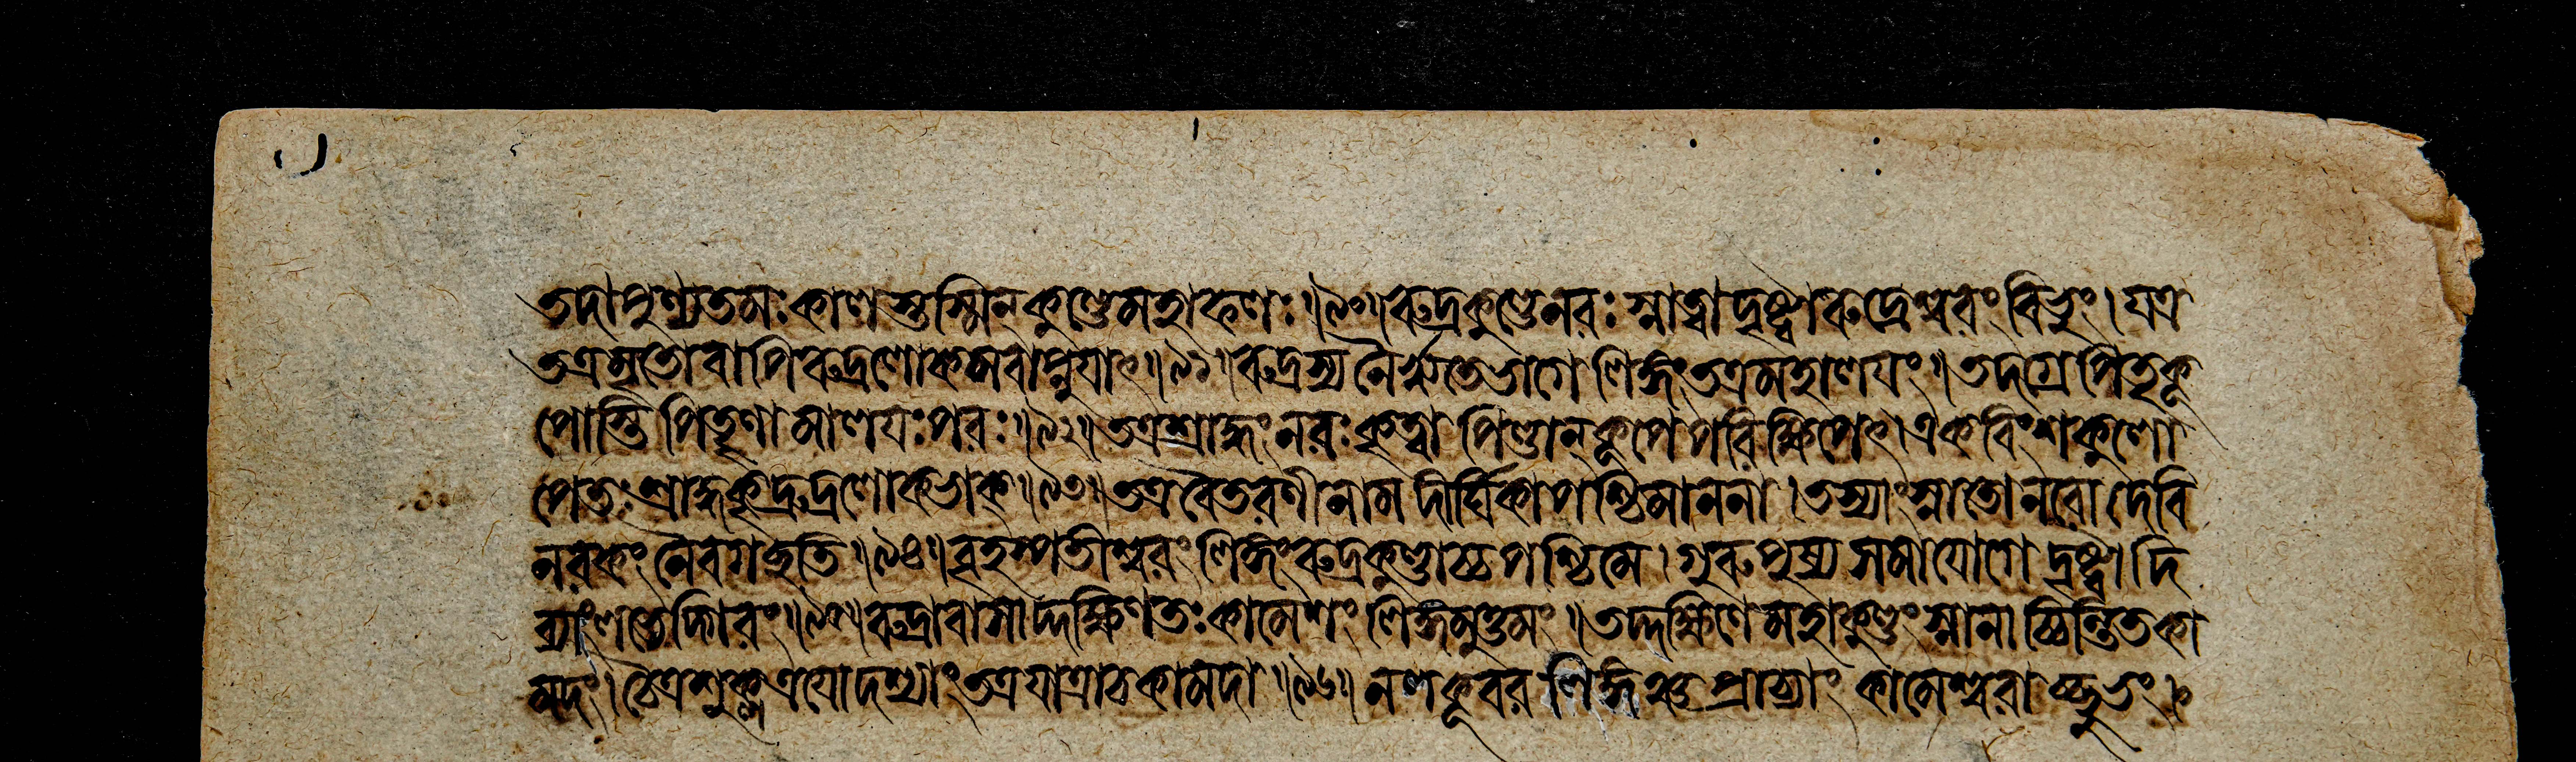 তদা পুণ্যতমঃ কালস্তস্মিন্ কুণ্ডে মহাফলঃ ॥৯০॥ রুদ্রকুণ্ডে নরঃ স্নাত্বা দৃষ্ট্বা রুদ্রেশ্বরং বিভুং । যত্র
তত্র মৃতো বাপি রুদ্রলোকমবাপ্নুযাৎ ॥৯১॥ রুদ্রস্য নৈরৃতে ভাগে লিঙ্গং তত্র মহালযং ॥ তদগ্রে পিতৃকূ
পোস্তি পিতৄণামালযঃ পরঃ ॥৯২॥ তত্র শ্রাদ্ধং নরঃ কৃত্বা পিণ্ডান্ কূপে পরিক্ষিপেৎ । একবিংশকুলো
পেতঃ শ্রাদ্ধকৃদ্রুদ্রলোকভাক্ ॥৯৩॥ তত্র বৈতরণী নাম দীর্ঘিকা পশ্চিমাননা । তস্যাং স্নাতো নরো দেবি
নরকং নৈব গচ্ছতি ॥৯৪॥ বৃহস্পতীশ্বরং লিঙ্গং রুদ্রকুণ্ডাচ্চ পশ্চিমে । গুরুপুষ্যসমাযোগে দৃষ্ট্বা দি
ব্যাং লভেদ্গিরং ॥৯৫॥ রুদ্রাবাসাদ্দক্ষিণতঃ কামেশং লিঙ্গমুত্তমং ॥ তদ্দক্ষিণে মহাকুণ্ডং স্নানাচ্চিন্তিতকা
মদং । চৈত্রশুক্লত্রযোদশ্যাং তত্র যাত্রা চ কামদা ॥৯৬॥ নলকূবরলিঙ্গঞ্চ প্রাচ্যাং কামেশ্বরাচ্ছুভং ।